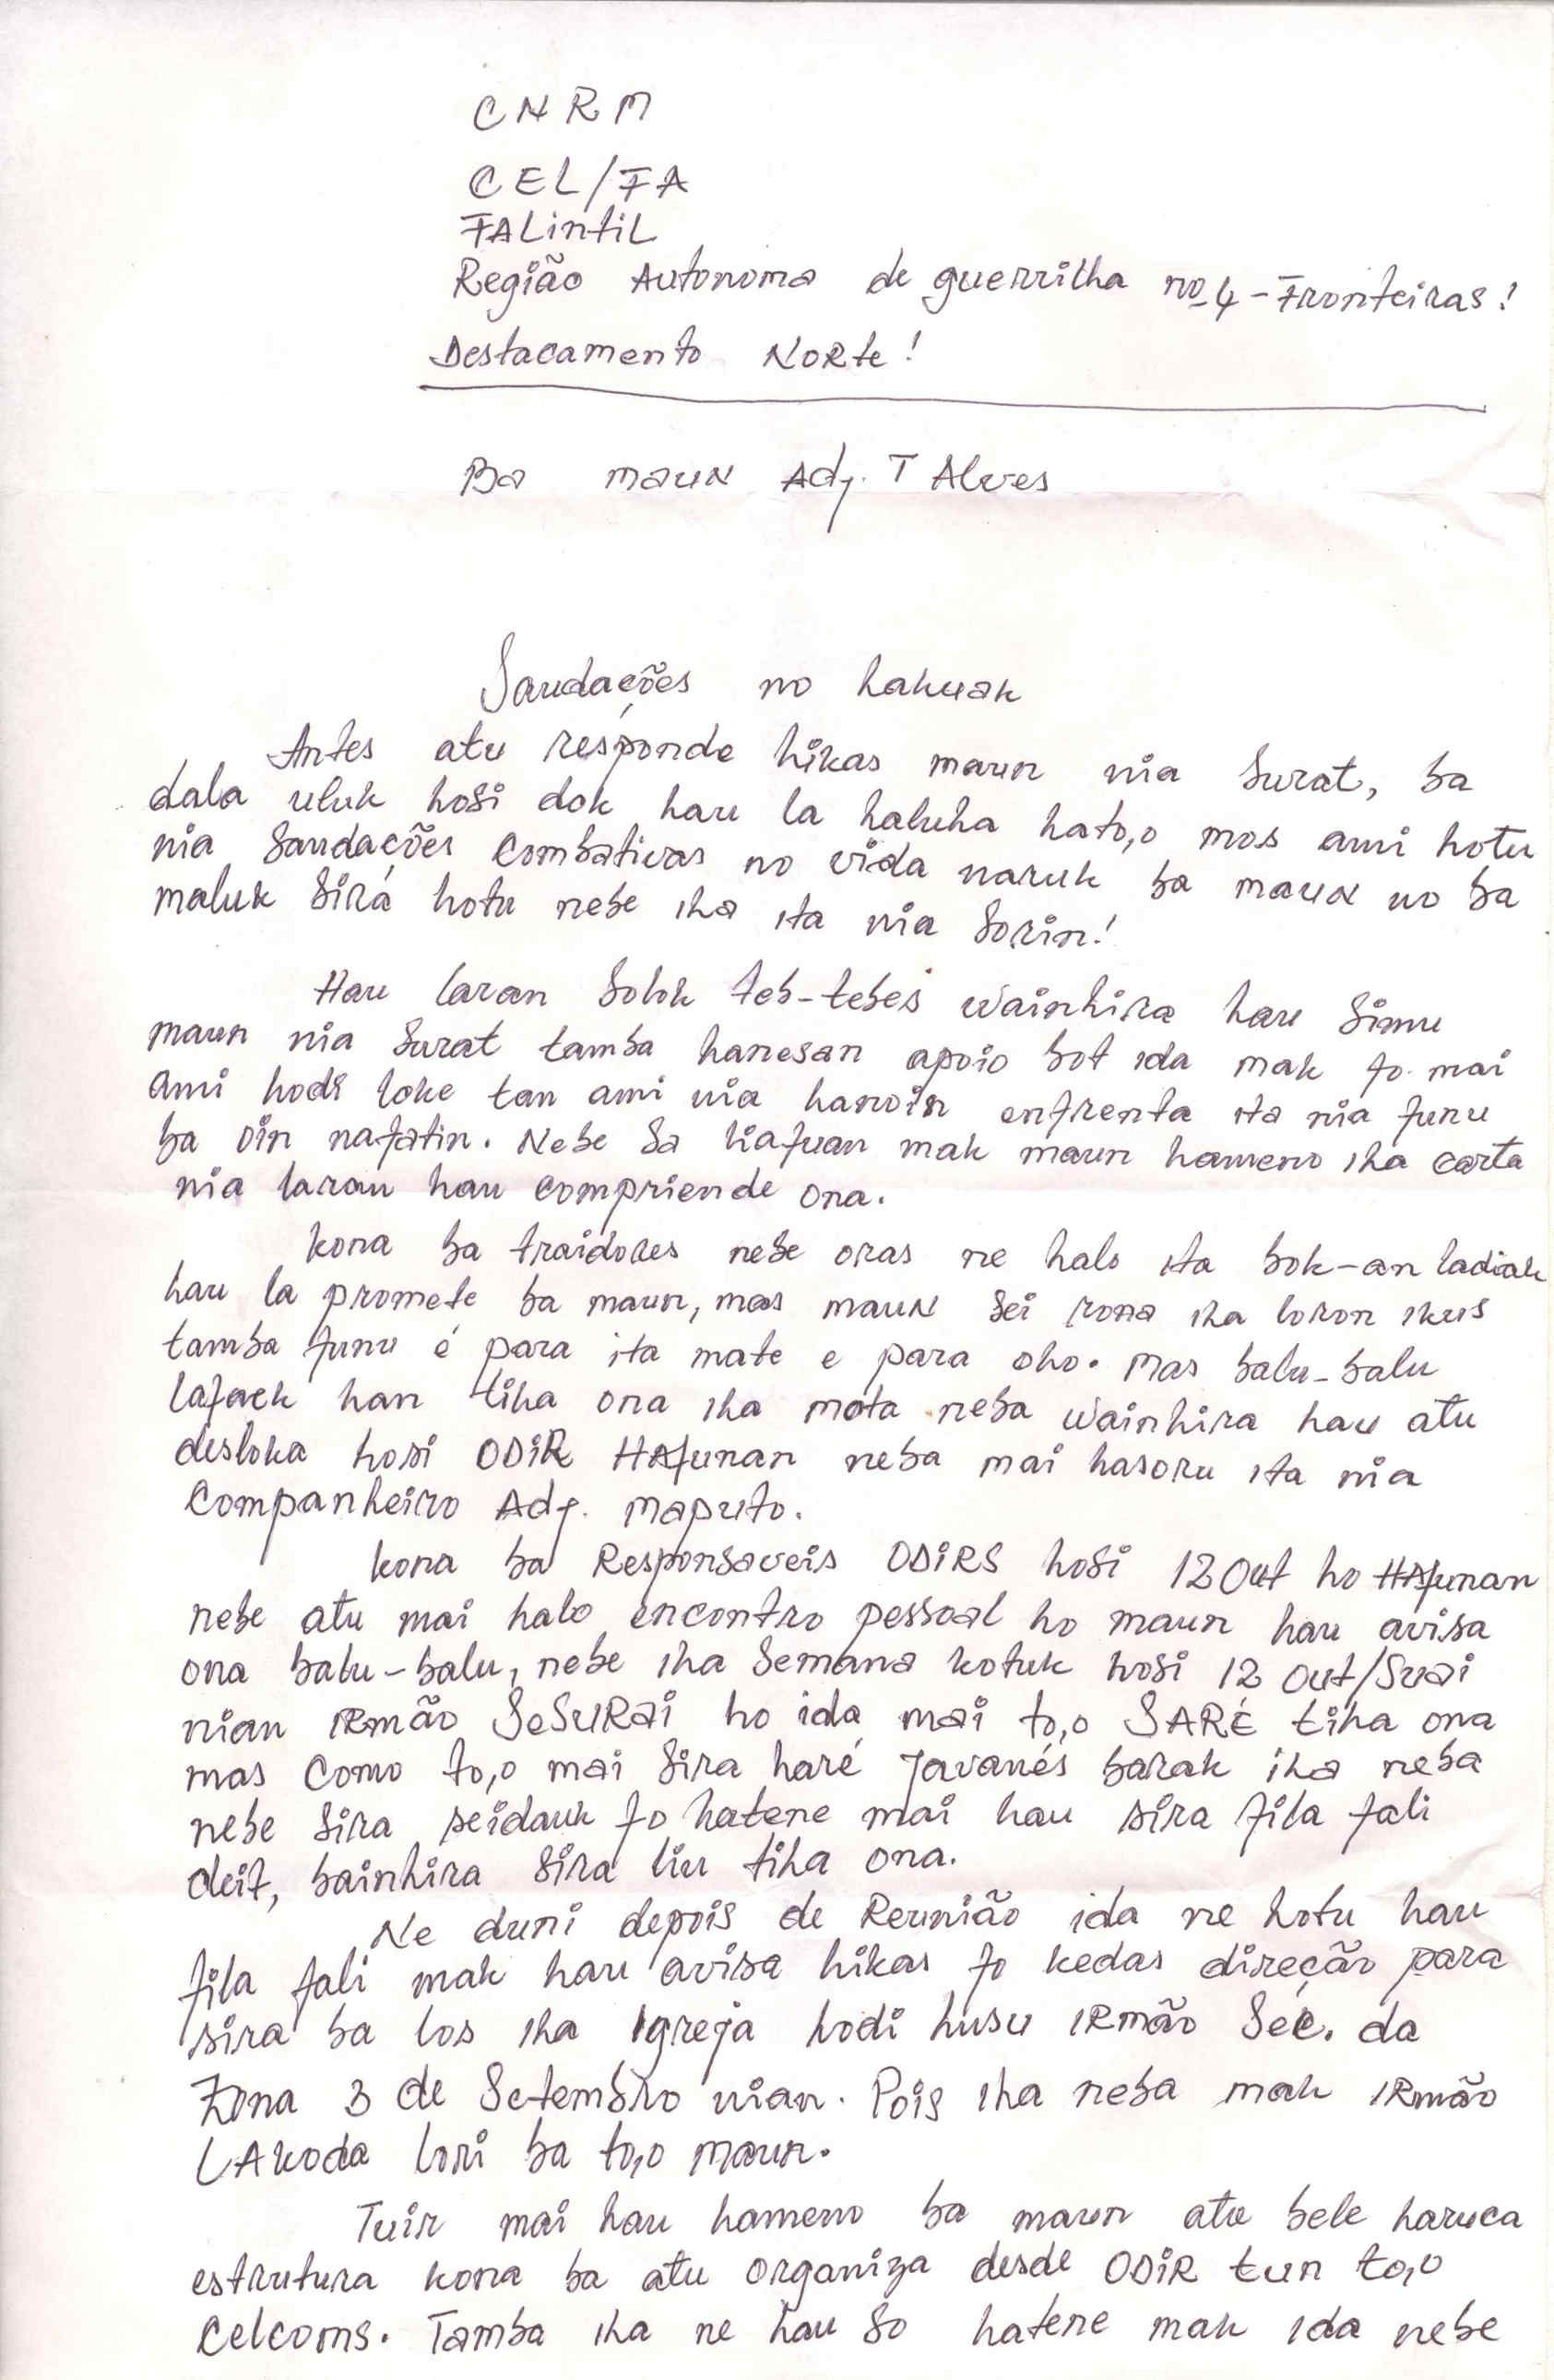 CNRM
CEL/FA
FALintiL
Região Autonoma de guerrilha no 4 - Fronteiras!
Destacamento NORte!
Ba maun Adj. T Alves
Saudações no hakuak
Antes atu responde hikas maun nia Surat, ba
dala uluk hosi dok hau la haluha hato,o mos ami hotu
nia Saudações Combativas no vida naruk ba maun no ba
maluk Sira hotu nebe iha ita nia Sorin!
Hau laran Solok teb-tebes Wainhira hau Simu
maun nia Surat tamba hanesan apoio bot ida mak fo mai
ami hodi loke tan ami nia hanoin enfrenta ita nia funu
ba oin nafatin. Nebe Sa liafuan mak maun hameno iha carta
nia laran hau compriende ona.
kona ba traidores nebe oras ne halo ita bok-an ladiak
hau la promete ba maun, mas maun Sei rona iha loron ikus
tamba funu é para ita mate e para oho. Mas balu-balu
lafaek han tiha ona iha mota neba wainhira hau atu
desloka hosi ODiR HAfunan neba mai hasoru ita nia
Companheiro Adj. Maputo.
kona ba Responsaveis ODiRS hosi 12 Out ho HAfunan
nebe atu mai halo encontro pessoal ho maun hau avisa
ona balu-balu, nebe iha Semana kotuk hosi 12 Out/Suai
nian IRmão SeSURai ho ida mai to,o SARÉ tiha ona
mas Como to,o mai Sira haré Javanés barak iha neba
nebe Sira seidauk fo hatene mai hau sira fila fali
deit, bainhira Sira liu tiha ona.
Ne duni depois de Reunião ida ne hotu hau
fila fali mak hau avisa hikas fo kedas direção para
sira ba los iha Igreja hodi husu IRmão Sec. da
Zona 3 de Setembro nian. Pois iha neba mak IRmão
LAkoda lori ba to,o maun.
Tuir mai hau hameno ba maun atu bele haruca
estrutura kona ba atu organiza desde ODiR tun to,o
Celcoms. Tamba iha ne hau So hatene mak ida nebe